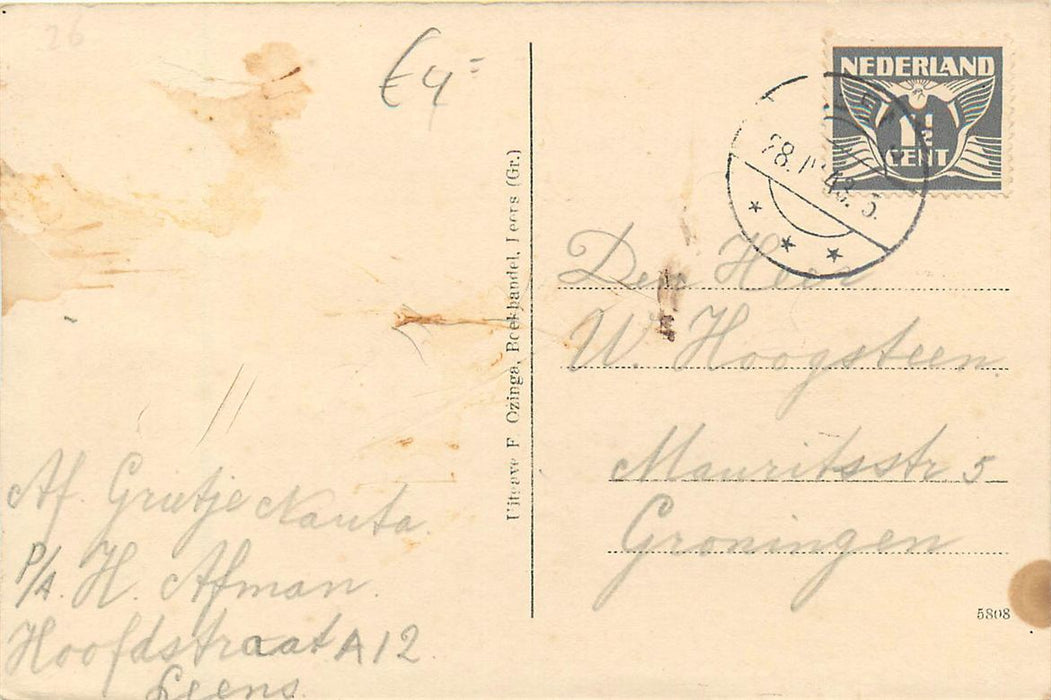 26
€4=
NEDERLAND
1½
CENT
28. 43. 5.
Uitgave F. Ozinga, Boekhandel, Leens (Gr.)
Den Heer
W. Hoogsteen.
Mauritsstr 5
Groningen
Af. Grietje Nauta.
P/A. H. Afman.
Hoofdstraat A12
Leens.
5808